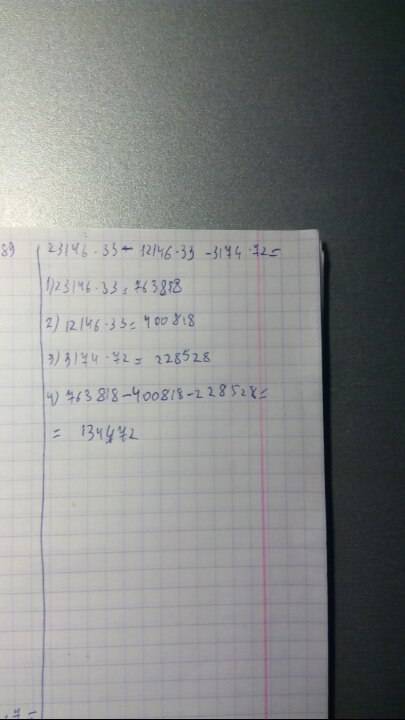 89 23146·33-12146·33-3174·72=
1) 23146·33=763818
2) 12146·33=400818
3) 3174·72=228528
4) 763818-400818-228528=
= 134472